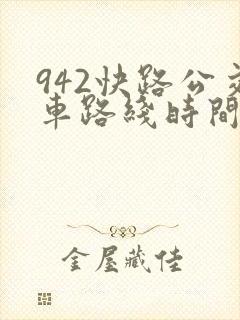 942快路公交
車路綫時間
金屋藏佳